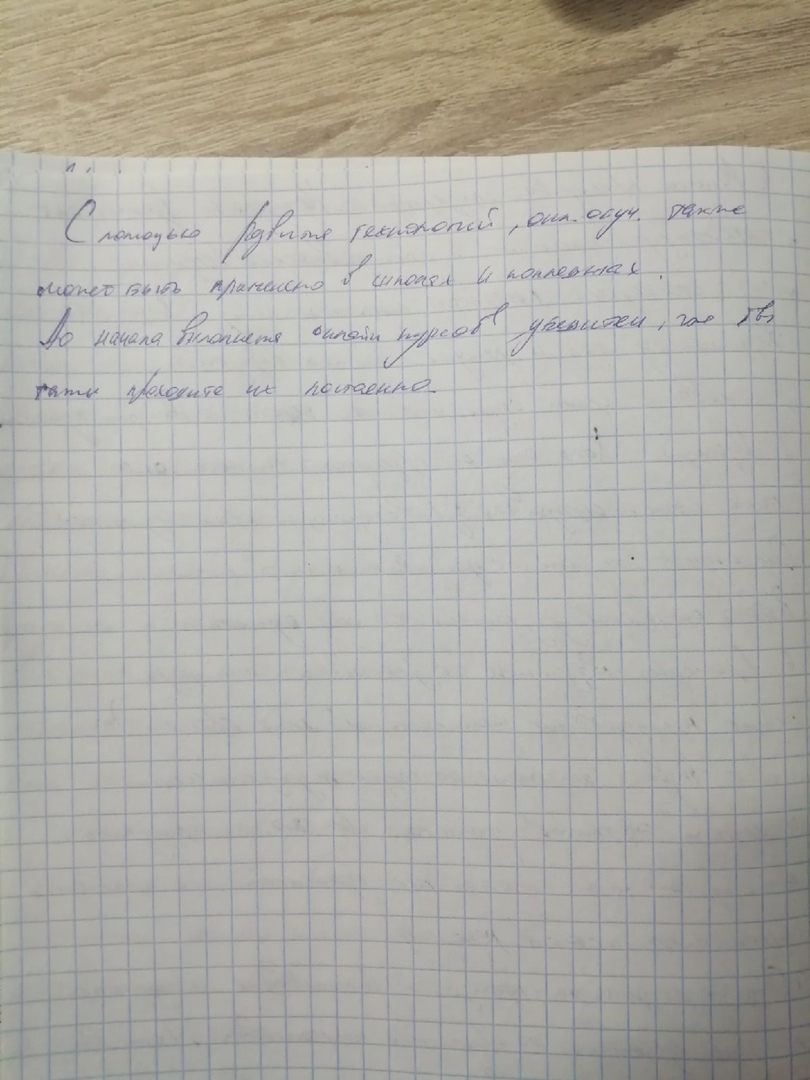 С помощью развития технологий, онл. обуч. также
может быть применено в школах и колледжах.
До начала онлайн курсов убедитесь, что вы
проходите их